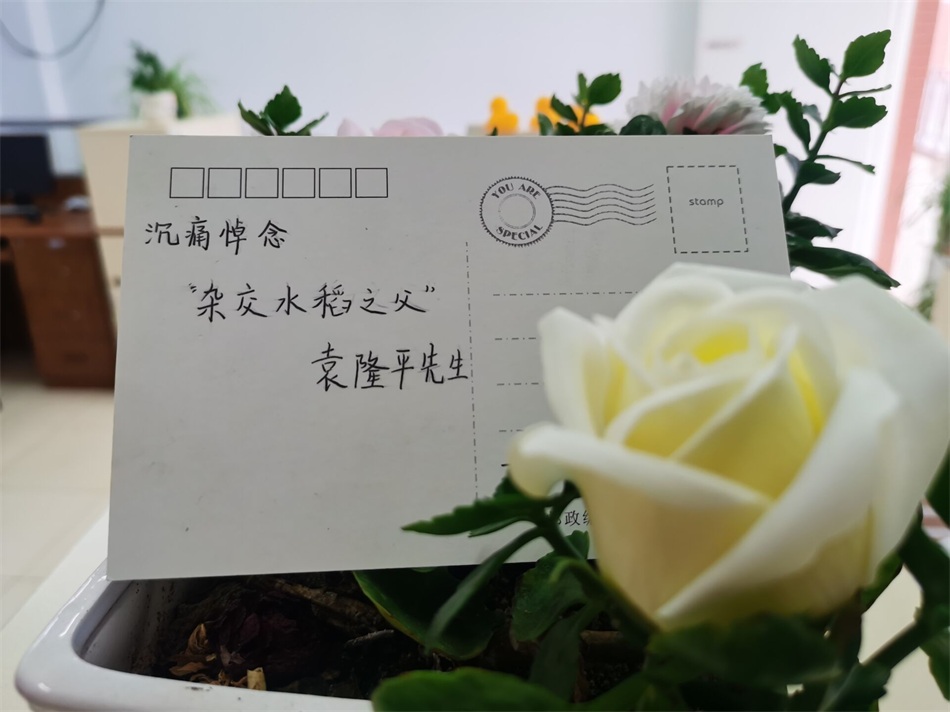 沉痛悼念
“杂交水稻之父”
袁隆平先生
YOU ARE
SPECIAL
stamp
政编